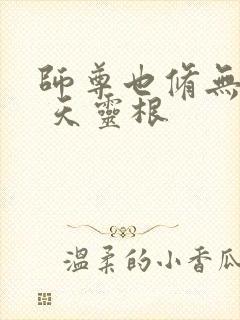 師尊也脩無
天靈根
溫柔的小香瓜